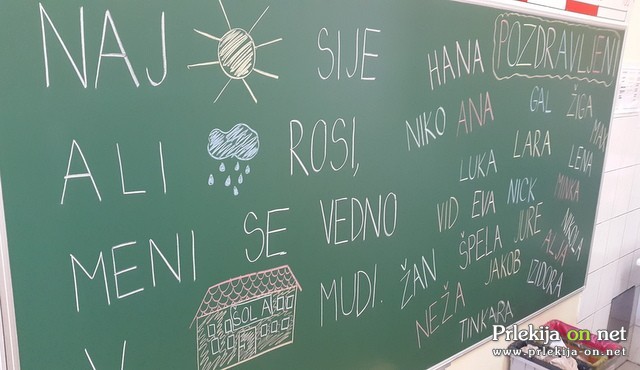 NAJ SIJE
ALI ROSI,
MENI SE VEDNO
MUDI.
V ŠOLA
POZDRAVLJENI
HANA
NIKO ANA GAL ŽIGA
MAX
LUKA LARA LENA
VID EVA NICK MINKA
ŽAN ŠPELA JURE NIKOLA
ALJA
NEŽA JAKOB IZIDORA
TINKARA
Prlekija on net
www.prlekija-on.net